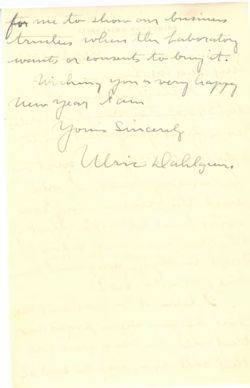 for me to show our business
trustees when the Laboratory
wants or consents to buy it.
Wishing you a very happy
New Year I am
Yours Sincerely
Ulric Dahlgren.